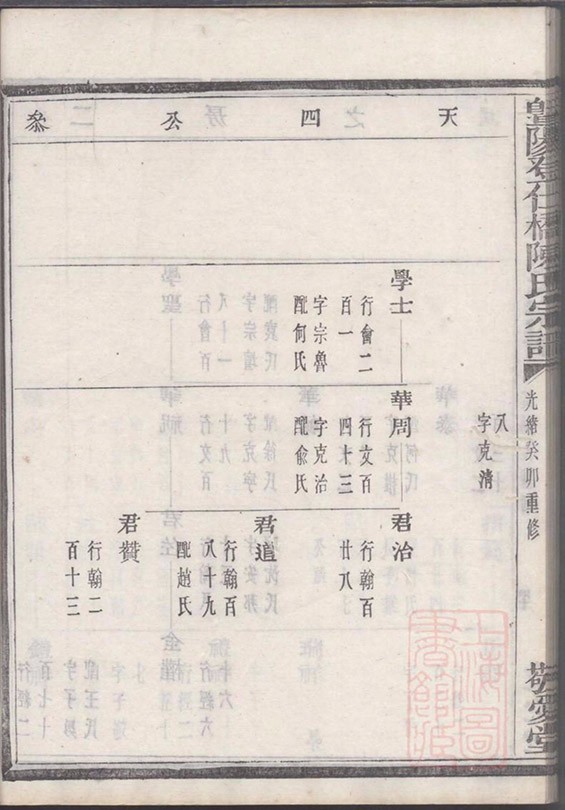 暨陽孝仁橋陳氏宗譜
光緒癸卯重修
敬愛堂
天四公叅
八
字克清
學士
行會二
百一
字宗魯
配何氏
華周
行文百
四十三
字克治
配俞氏
君治
行翰百
廿八
君道
行翰百
八十九
配趙氏
君贊
行翰二
百十三
上海圖
書館藏